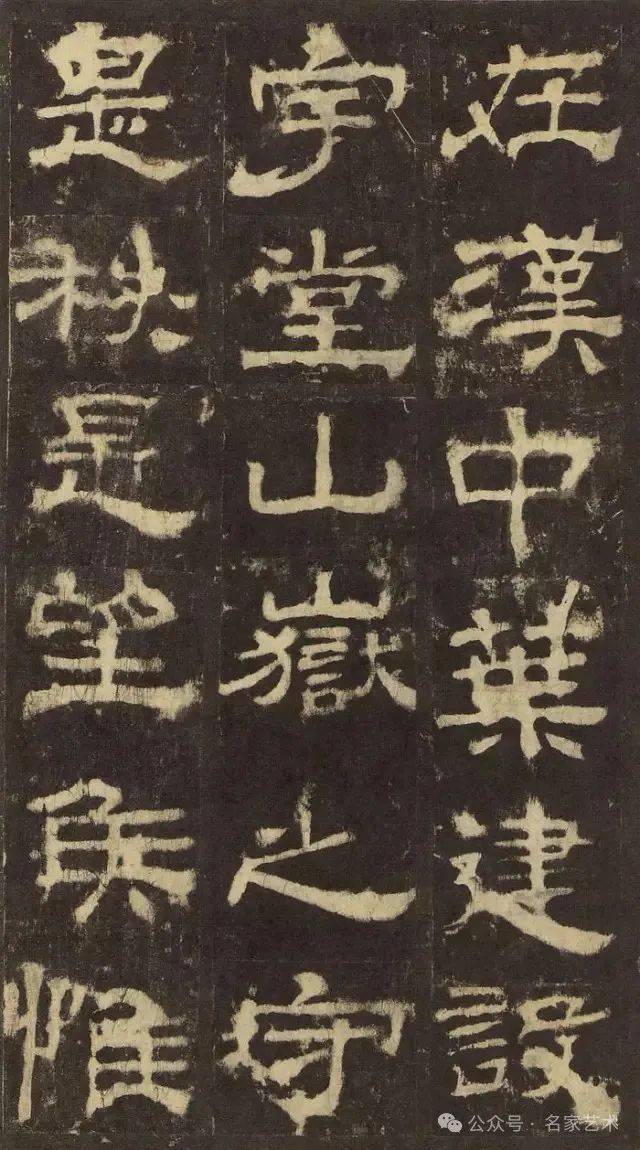 在漢中葉建設
宇堂山嶽之守
是秩是望侯惟
公众号·名家艺术